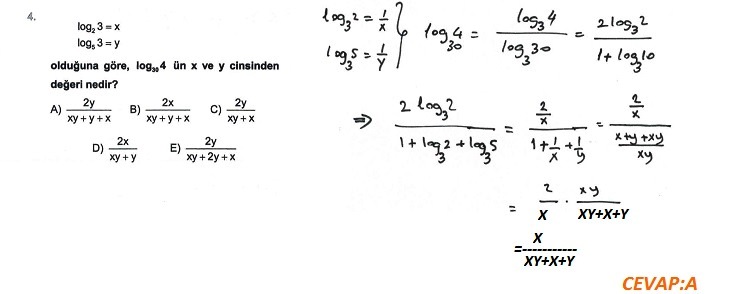 4.
log₂ 3 = x
log₅ 3 = y
olduğuna göre, log₃₀ 4 ün x ve y cinsinden
değeri nedir?
A) 2y/(xy + y + x) B) 2x/(xy + y + x) C) 2y/(xy + x)
D) 2x/(xy + y) E) 2y/(xy + 2y + x)
log₃2 = 1/x
log₃5 = 1/y
} log₃₀4 = log₃4/log₃30 = 2log₃2/(1 + log₃10)
⇒ 2 log₃2/(1 + log₃2 + log₃5) = (2/x)/(1 + 1/x + 1/y) = (2/x)/((x+y+xy)/xy)
= 2/X · xy/(XY+X+Y)
= X/(XY+X+Y)
CEVAP:A